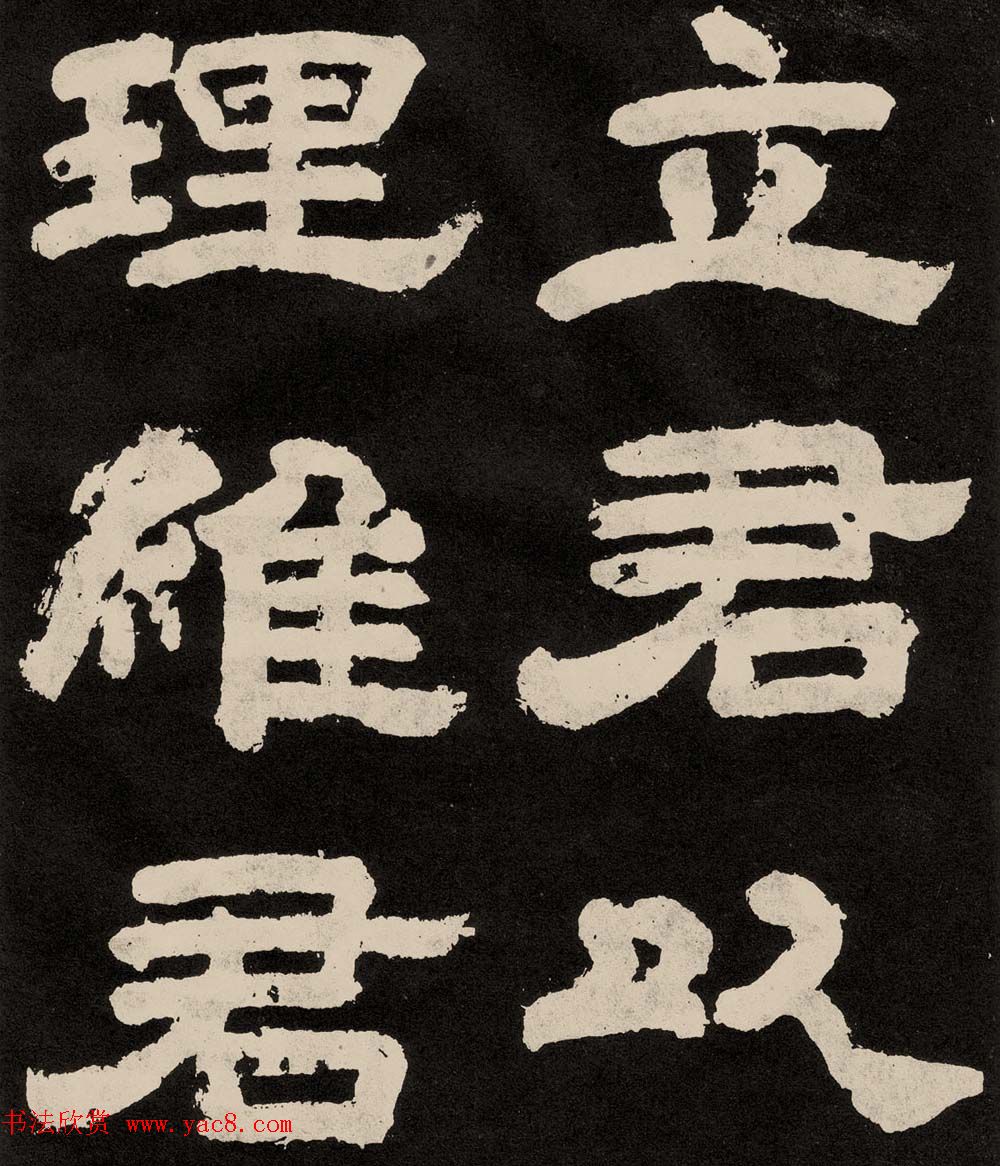 立君以
理維君
书法欣赏 www.yac8.com